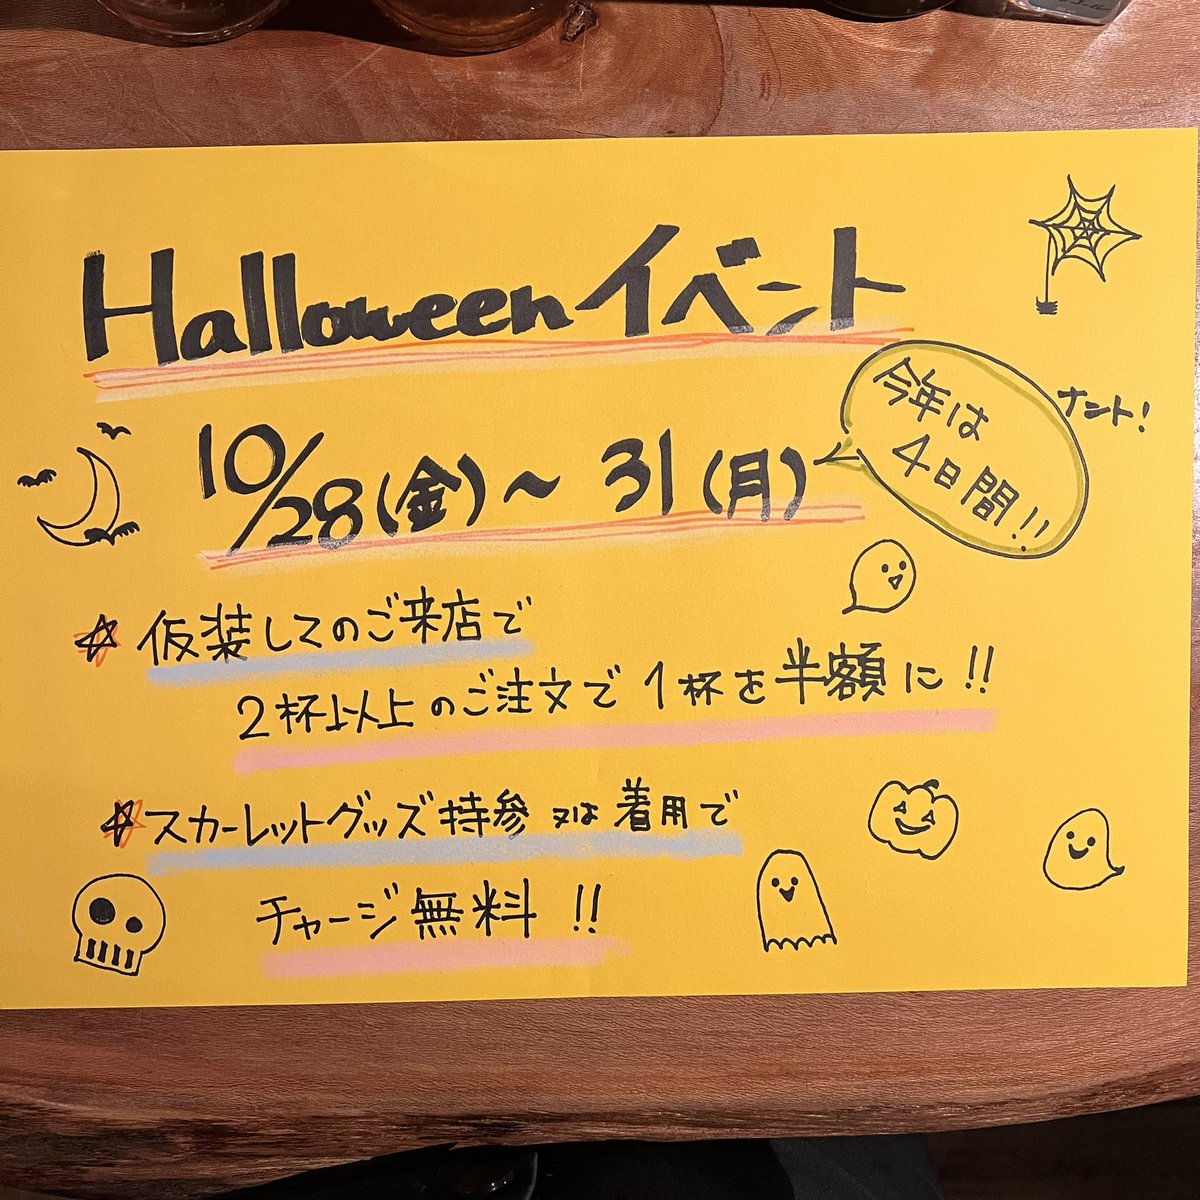 Halloweenイベント
10/28(金)〜31(月)
ナント!
今年は
4日間!!
☆仮装してのご来店で
2杯以上のご注文で1杯を半額に!!
☆スカーレットグッズ持参又は着用で
チャージ無料!!